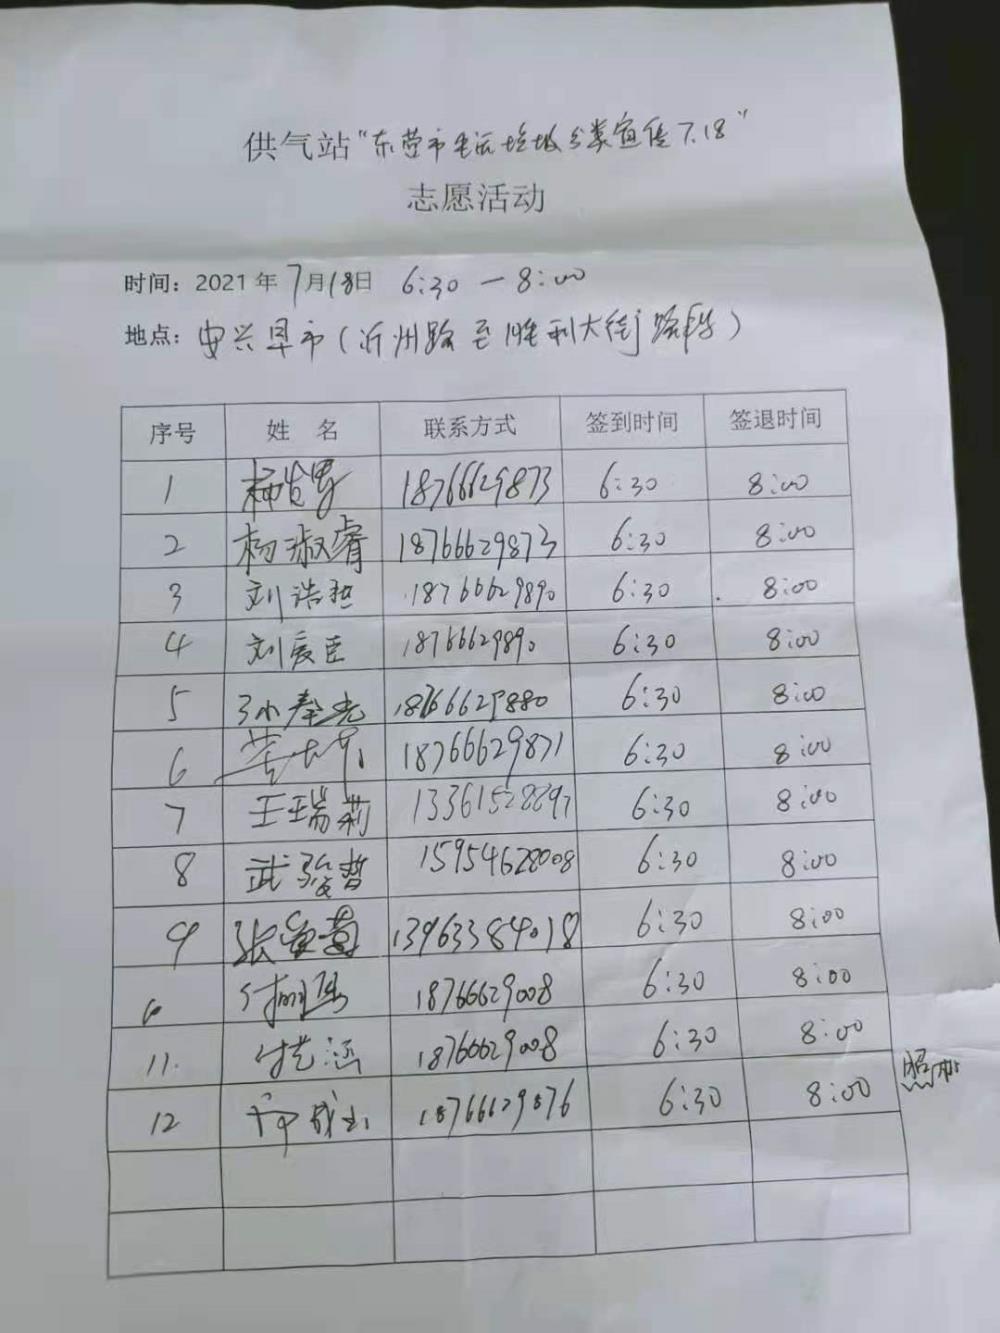 供气站“东营市生活垃圾分类宣传7.18”
志愿活动
时间：2021年7月18日 6:30—8:00
地点：安兴早市（沂州路至胜利大街路段）
序号 姓名 联系方式 签到时间 签退时间
1 18766629873 6:30 8:00
2 杨淑睿 18766629873 6:30 8:00
3 刘浩 18766629890 6:30 8:00
4 刘爱臣 18766629890 6:30 8:00
5 孙奉光 18766629880 6:30 8:00
6 18766629871 6:30 8:00
7 王瑞莉 13361528897 6:30 8:00
8 武骏哲 15954628008 6:30 8:00
9 张 13963384018 6:30 8:00
10 付 18766629008 6:30 8:00
11. 付艺涵 18766629008 6:30 8:00
12 18766629876 6:30 8:00 照相